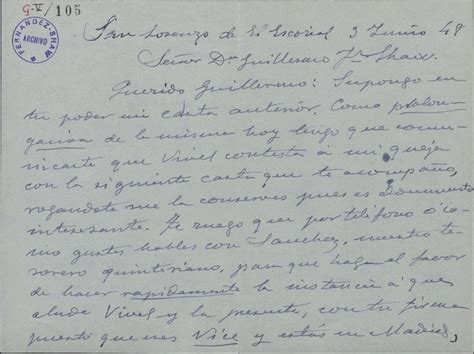 G-V/105
FERNANDEZ-SHAW
ARCHIVO
San Lorenzo de El Escorial 3 Junio 48
Señor Dn Guillermo Fz Shaw.
Querido Guillermo: Supongo en
tu poder mi carta anterior. Como prolon-
gación de la misma hoy tengo que comu-
nicarte que Vivel contesta á mi queja
con la siguiente carta que te acompaño,
rogandote me la conserves pues es documento
interesante. Te ruego que por teléfono ó co-
mo gustes hables con Sanchez, nuestro te-
sorero quinteriano, para que haga el favor
de hacer rapidamente la instancia á que
alude Vivel y la presente, con tu firma
puesto que eres Vice y estás en Madrid,